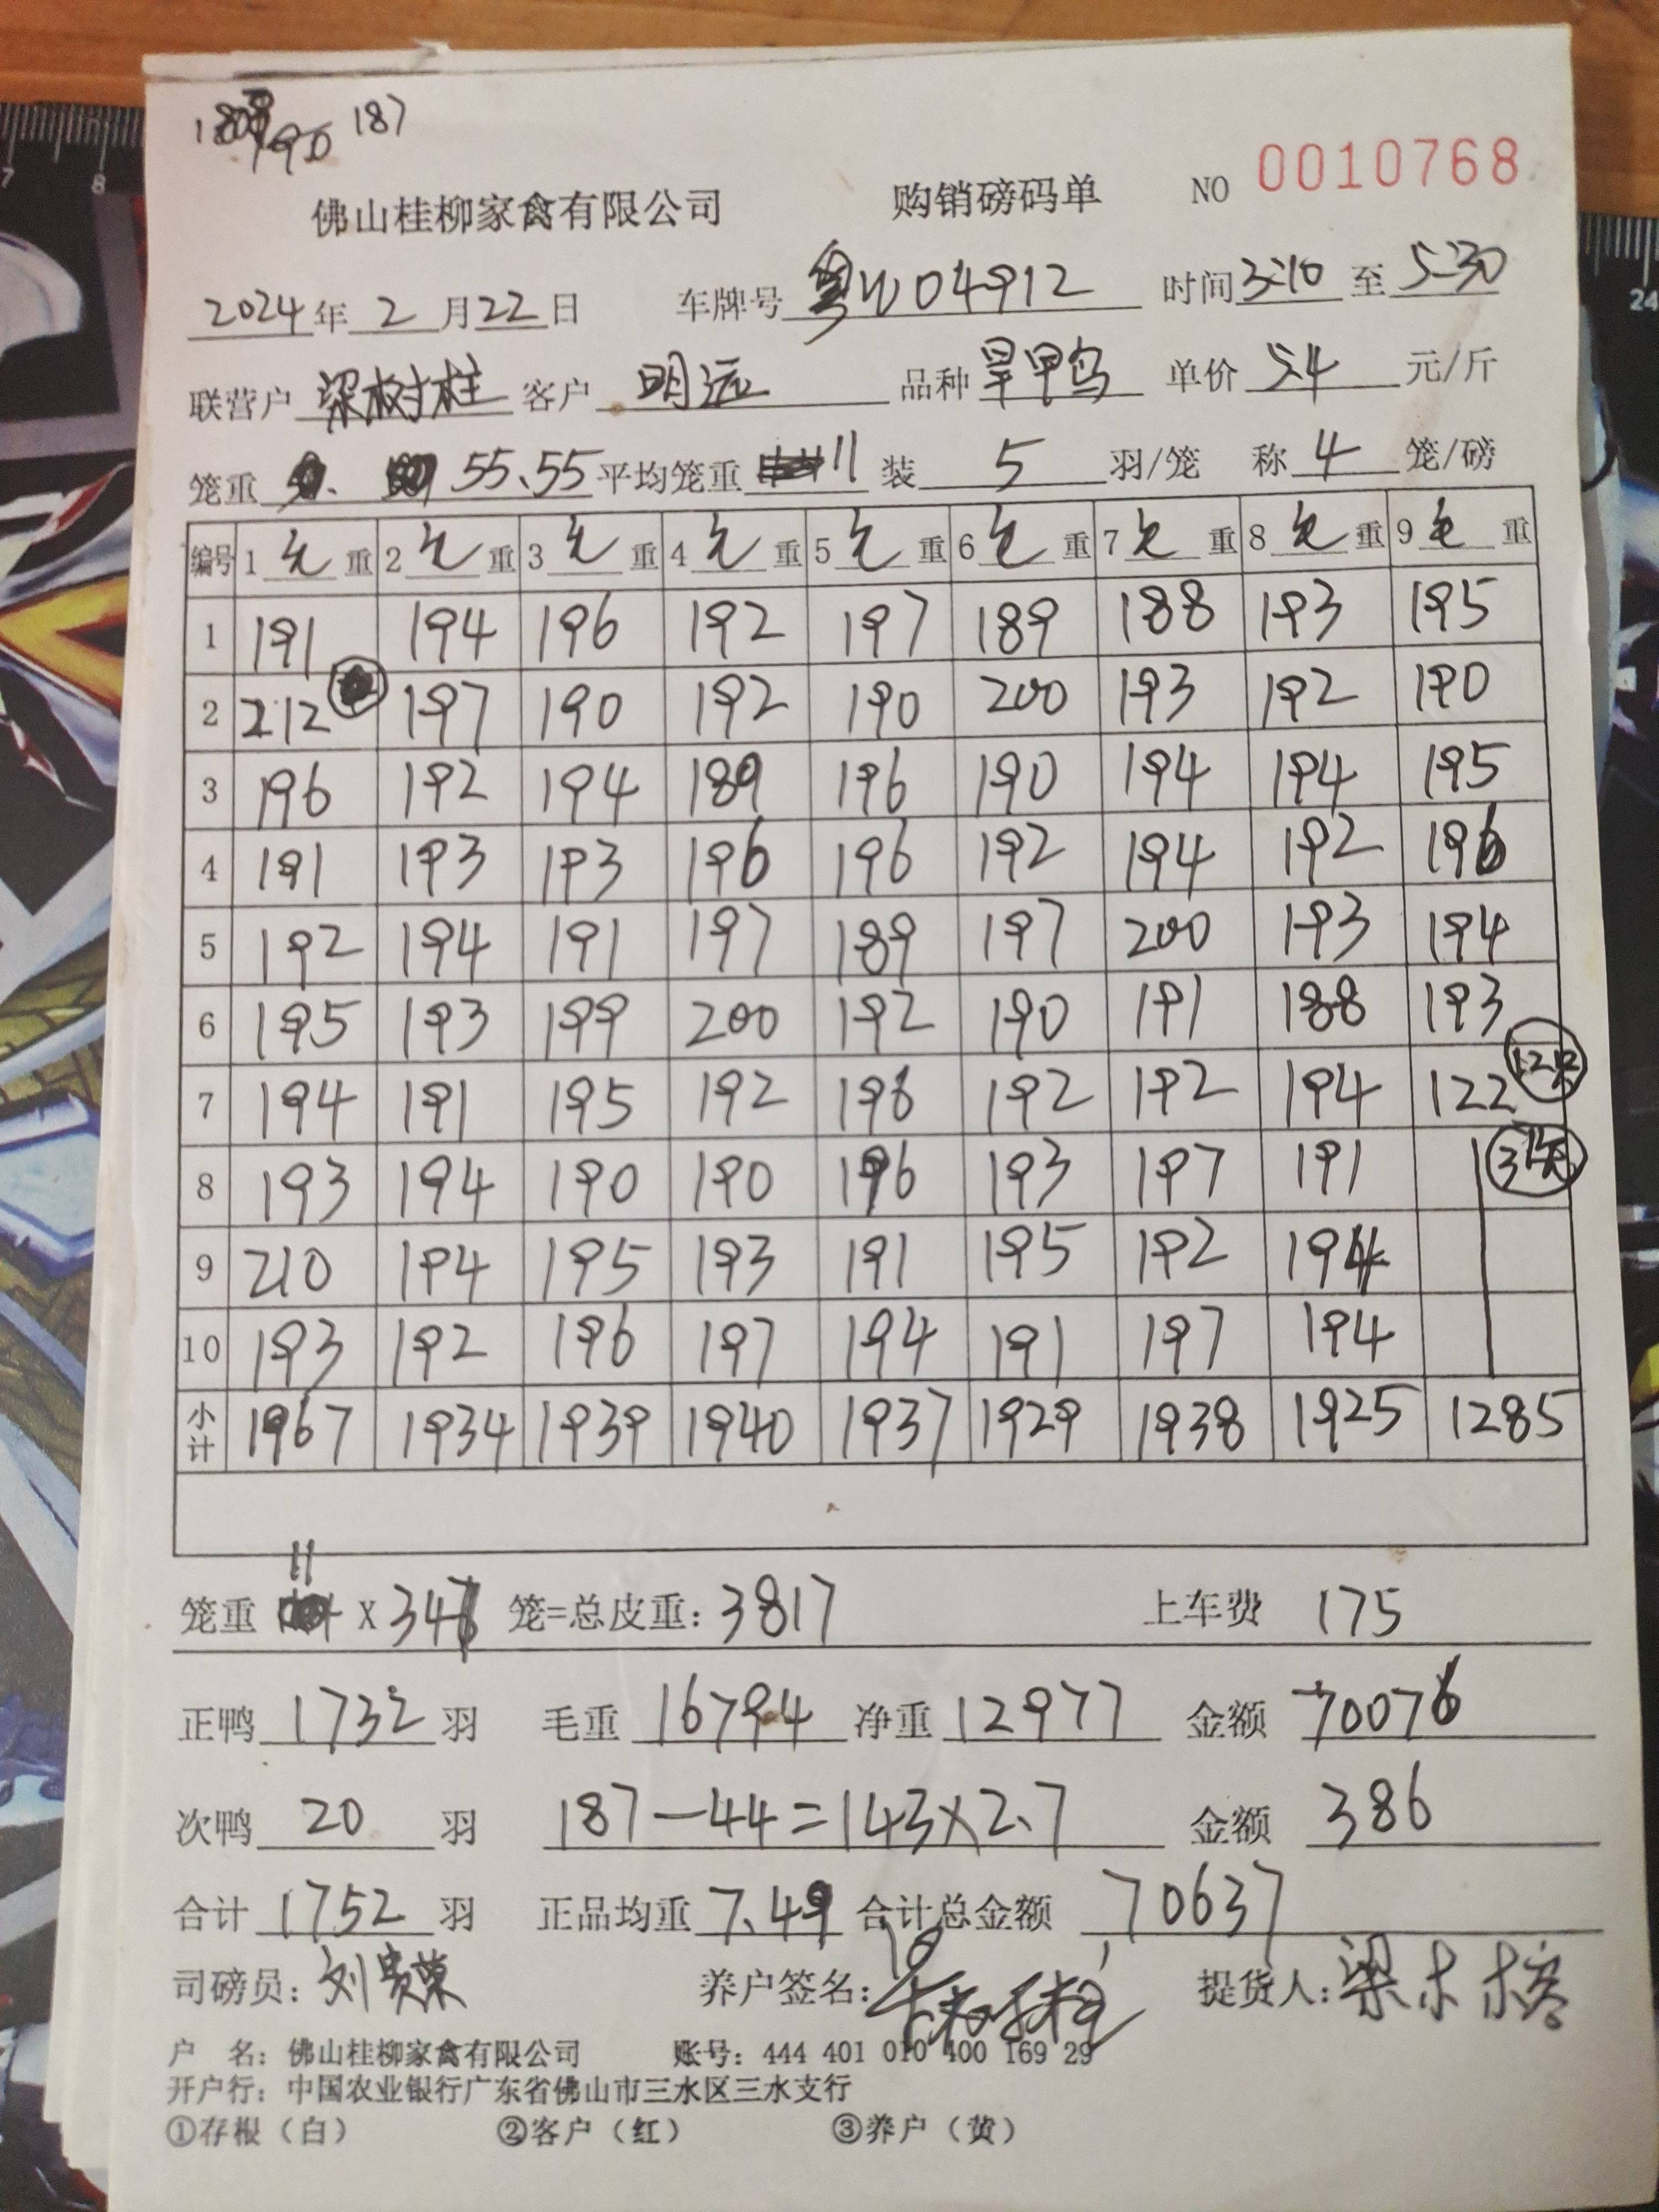 190 187
佛山桂柳家禽有限公司 购销磅码单 NO 0010768
2024年2月22日 车牌号 粤W04912 时间 3:10 至 5:30
联营户 梁树柱 客户 明远 品种 旱甲鸟 单价 5.4 元/斤
笼重 55、55 平均笼重 11 装 5 羽/笼 称 4 笼/磅
编号 1 毛 重 2 毛 重 3 毛 重 4 毛 重 5 毛 重 6 毛 重 7 毛 重 8 毛 重 9 毛 重
1 191 194 196 192 197 189 188 193 195
2 212 197 190 192 190 200 193 192 190
3 196 192 194 189 196 190 194 194 195
4 191 193 193 196 196 192 194 192 196
5 192 194 191 197 189 197 200 193 194
6 195 193 199 200 192 190 191 188 193
7 194 191 195 192 196 192 192 194 122
8 193 194 190 190 196 193 197 191
9 210 194 195 193 191 195 192 194
10 193 192 196 197 194 191 197 194
小计 1967 1934 1939 1940 1937 1929 1938 1925 1285
笼重 11 X 347 笼=总皮重: 3817 上车费 175
正鸭 1732 羽 毛重 16794 净重 12977 金额 70076
次鸭 20 羽 187-44=143×2.7 金额 386
合计 1752 羽 正品均重 7.49 合计总金额 70637
司磅员: 刘贵荣 养户签名: 提货人: 梁木榕
户 名: 佛山桂柳家禽有限公司 账号: 444 401 010 400 169 29
开户行: 中国农业银行广东省佛山市三水区三水支行
①存根(白) ②客户(红) ③养户(黄)